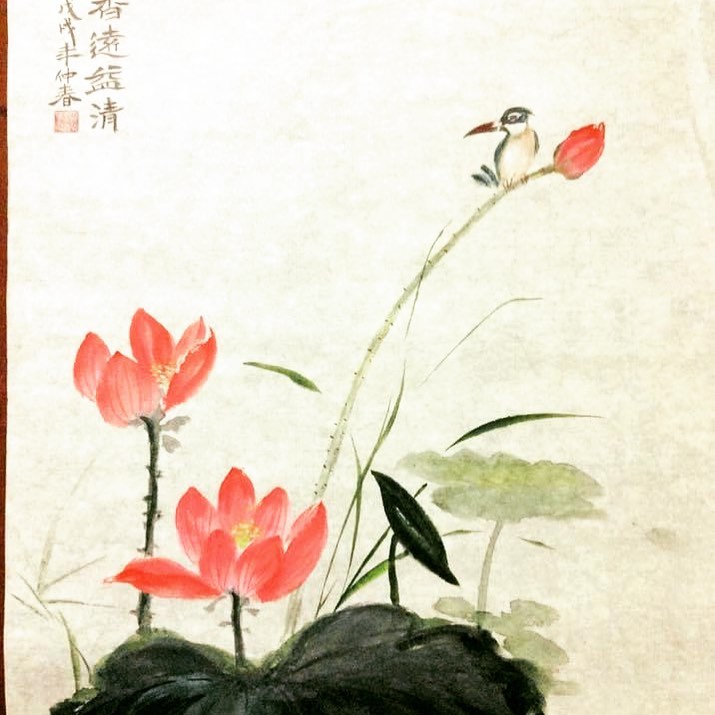 香遠益清
戊戌年仲春